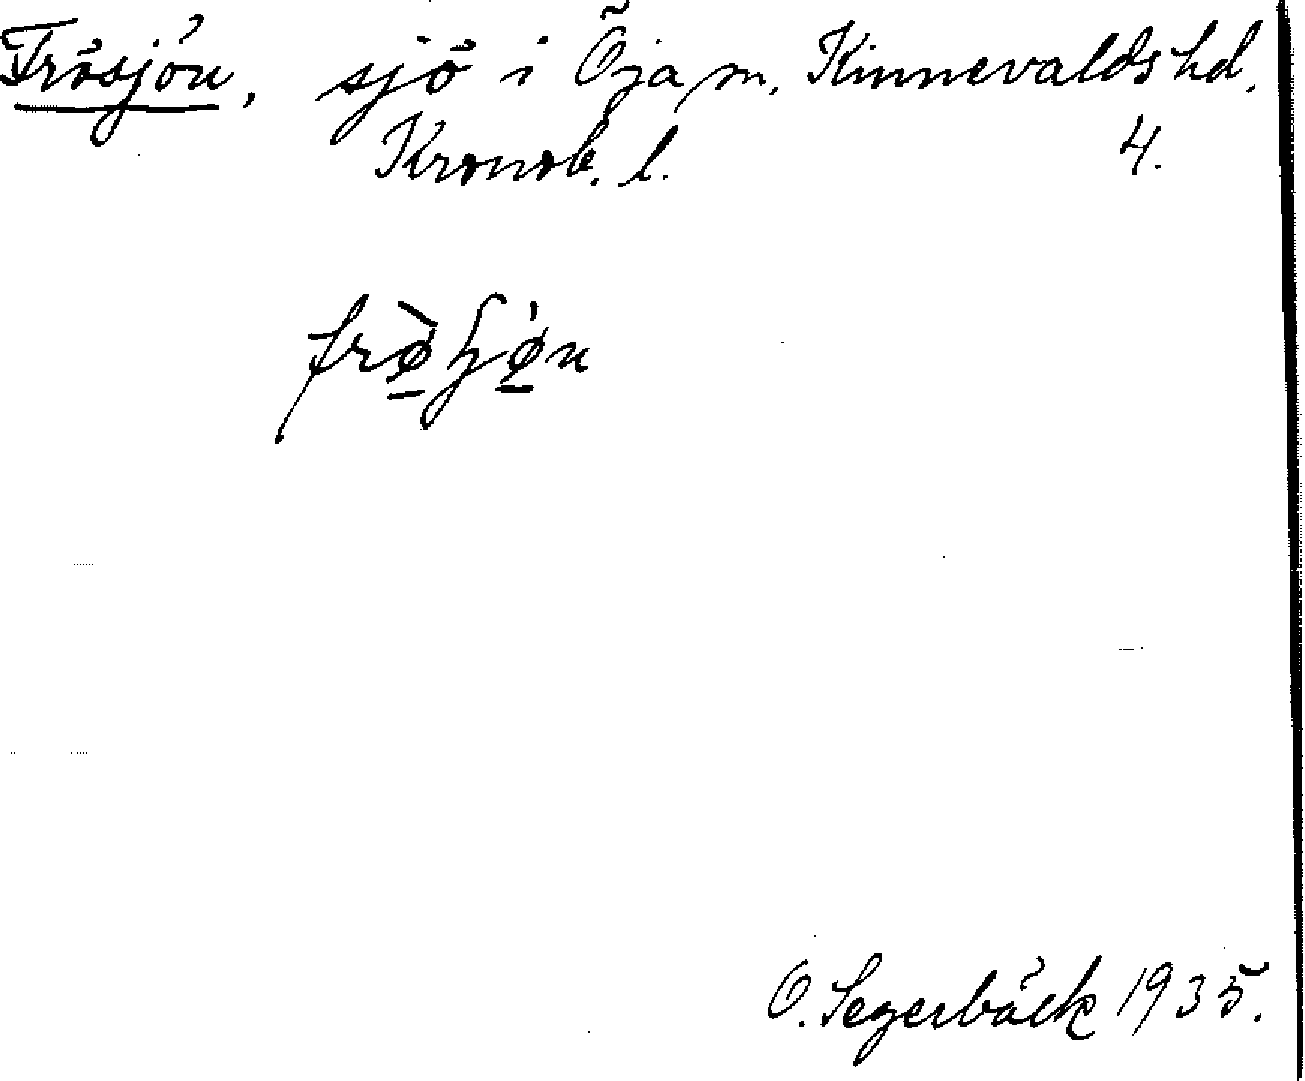 Frösjön, sjö i Öja sn, Kinnevalds hd.
Kronob. l. 4.
O. Segerbäck 1935.